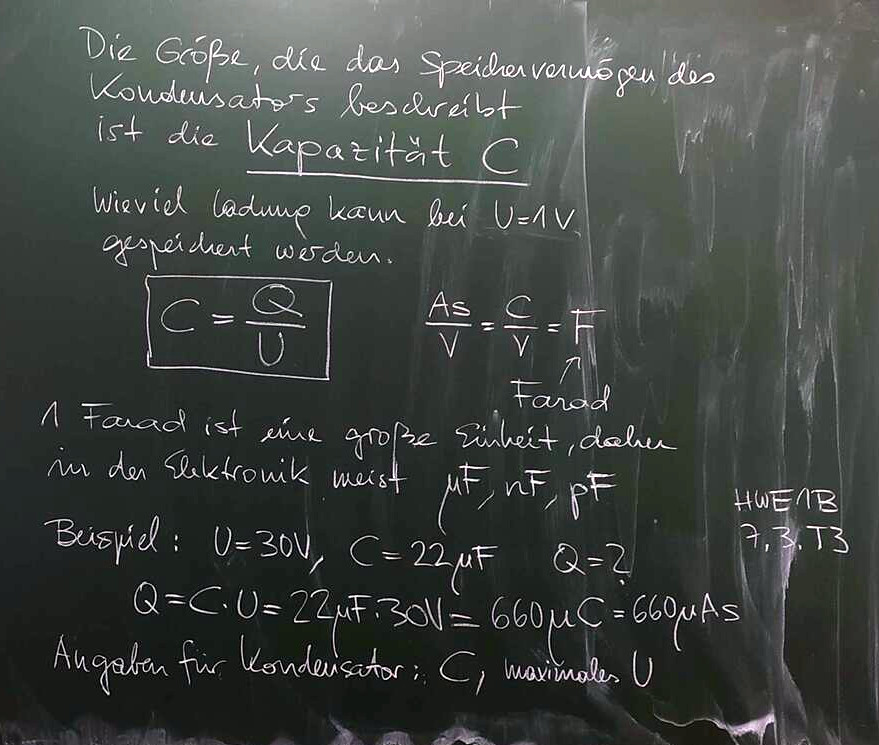 Die Größe, die das Speichervermögen des
Kondensators beschreibt
ist die Kapazität C
Wieviel Ladung kann bei U=1V
gespeichert werden.
C = Q/U
As/V = C/V = F
Farad
1 Farad ist eine große Einheit, daher
in der Elektronik meist µF, nF, pF
HWE1B
7.3.T3
Beispiel: U=30V, C=22µF Q=?
Q=C·U=22µF·30V=660µC=660µAs
Angaben für Kondensator: C, maximales U